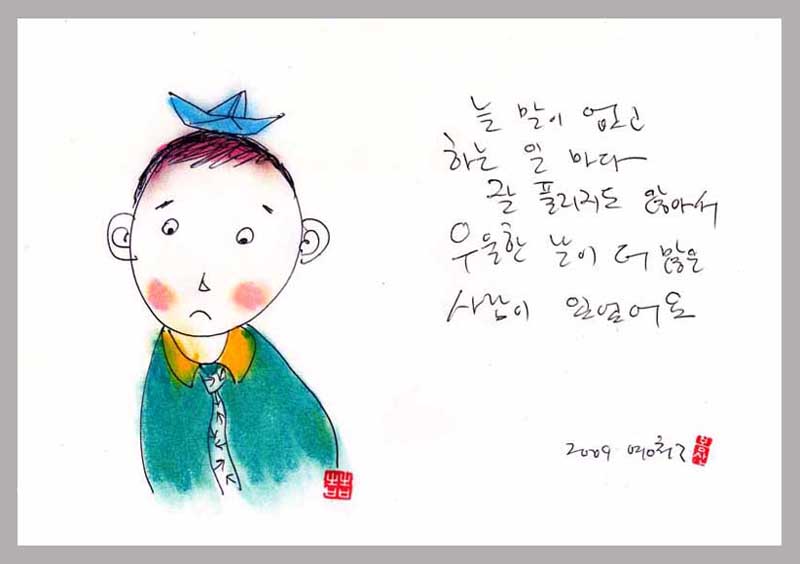 늘 말이 없고
하는 일 마다
잘 풀리지도 않아서
우울한 날이 더 많은
사람이 있었어요
2009.